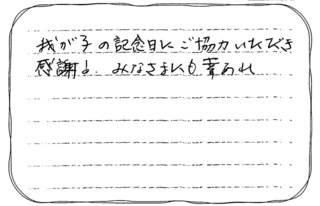 我が子の記念日にご協力いただき
感謝♪ みなさまにも幸あれ